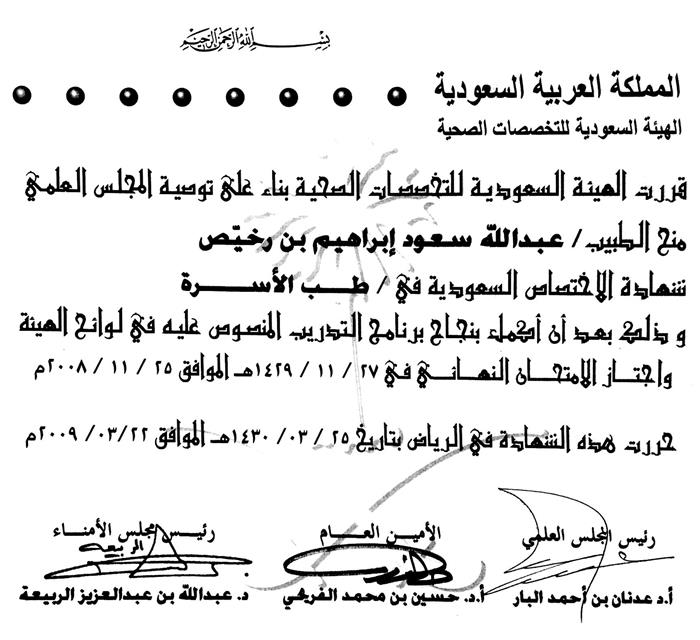 بسم الله الرحمن الرحيم
المملكة العربية السعودية
الهيئة السعودية للتخصصات الصحية
قررت الهيئة السعودية للتخصصات الصحية بناء على توصية المجلس العلمي
منح الطبيب / عبدالله سعود إبراهيم بن رخيّص
شهادة الاختصاص السعودية في / طب الأسرة
و ذلك بعد أن أكمل بنجاح برنامج التدريب المنصوص عليه في لوائح الهيئة
واجتاز الامتحان النهائي في ٢٧ / ١١ / ١٤٢٩هـ الموافق ٢٥ / ١١ / ٢٠٠٨م
حررت هذه الشهادة في الرياض بتاريخ ٢٥ / ٠٣ / ١٤٣٠هـ الموافق ٢٢/٠٣/ ٢٠٠٩م
رئيس المجلس العلمي
الأمين العام
رئيس مجلس الأمناء
أ.د عدنان بن أحمد البار
أ.د. حسين بن محمد الفريحي
د. عبدالله بن عبدالعزيز الربيعة